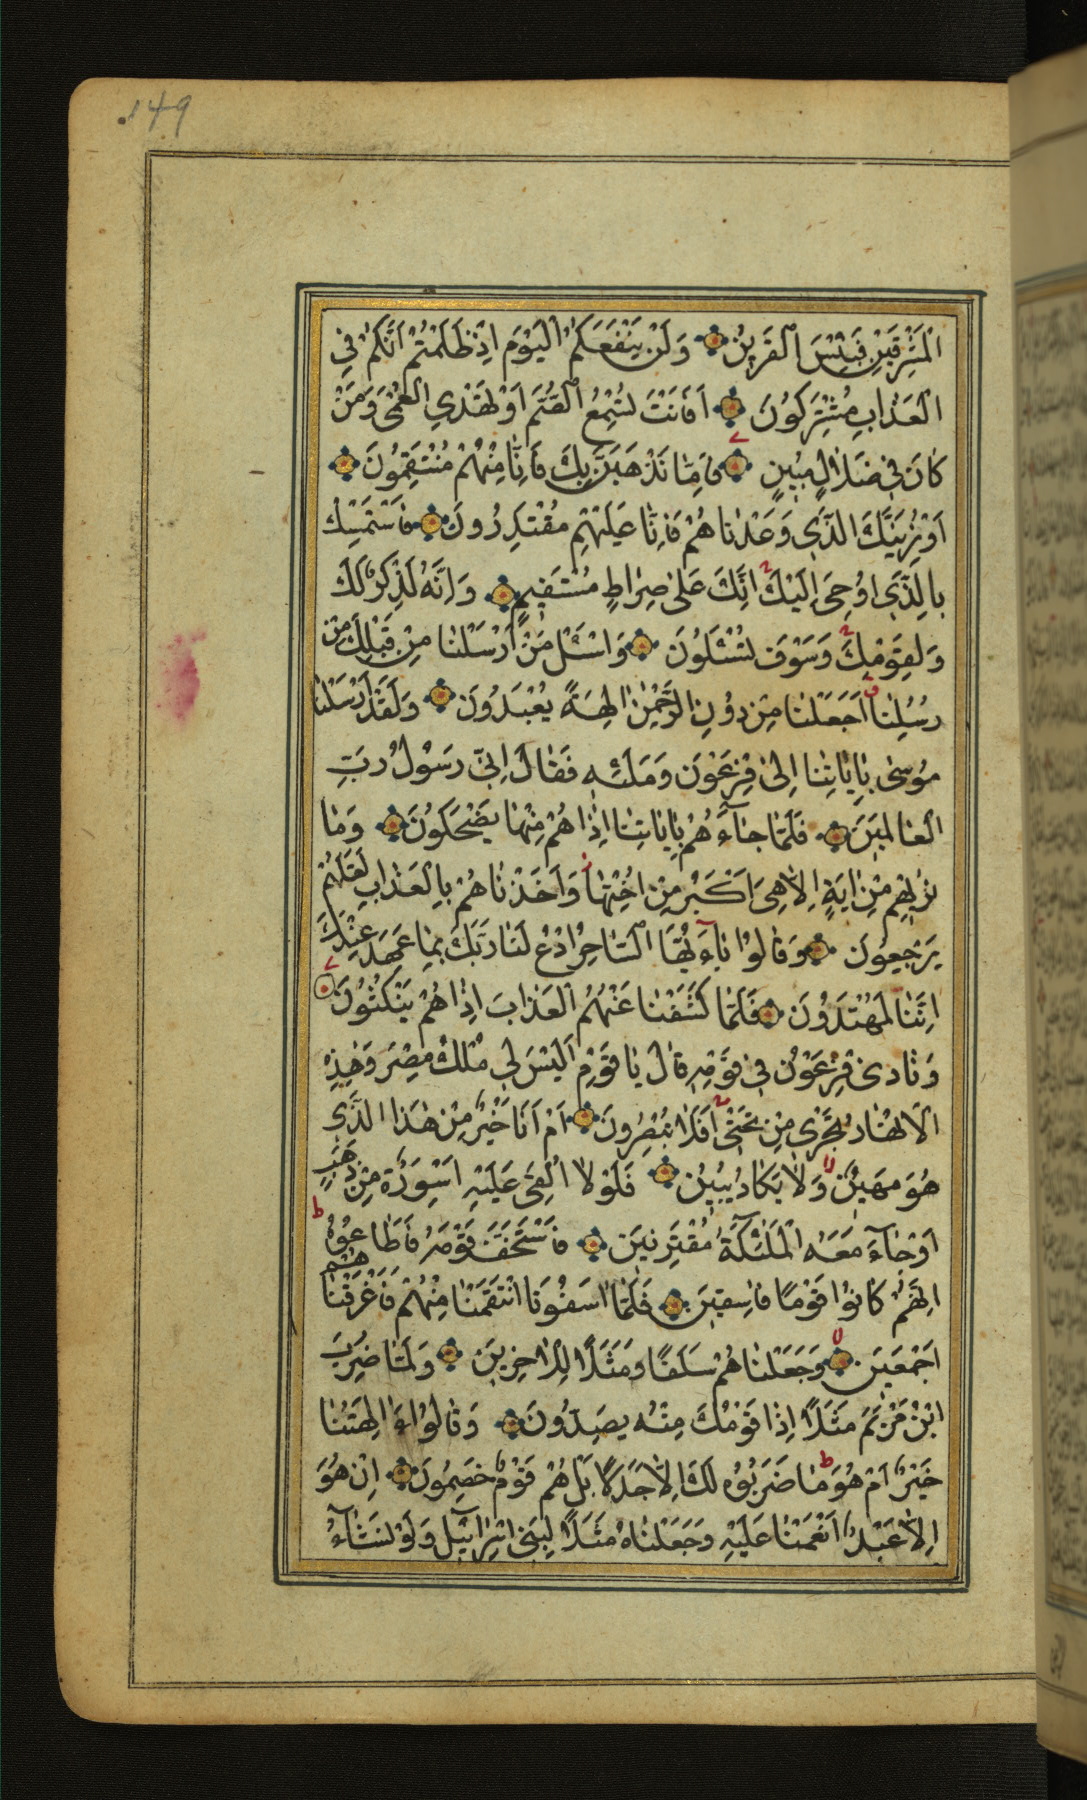 149
الْمَشْرِقَيْنِ فَبِئْسَ الْقَرِينُ وَلَنْ يَنْفَعَكُمُ الْيَوْمَ اِذْ ظَلَمْتُمْ اَنَّكُمْ فِي
الْعَذَابِ مُشْتَرِكُونَ اَفَاَنْتَ تُسْمِعُ الصُّمَّ اَوْ تَهْدِي الْعُمْيَ وَمَنْ
كَانَ فِي ضَلَالٍ مُبِينٍ فَاِمَّا نَذْهَبَنَّ بِكَ فَاِنَّا مِنْهُمْ مُنْتَقِمُونَ
اَوْ نُرِيَنَّكَ الَّذِي وَعَدْنَاهُمْ فَاِنَّا عَلَيْهِمْ مُقْتَدِرُونَ فَاسْتَمْسِكْ
بِالَّذِي اُوحِيَ اِلَيْكَ اِنَّكَ عَلَى صِرَاطٍ مُسْتَقِيمٍ وَاِنَّهُ لَذِكْرٌ لَكَ
وَلِقَوْمِكَ وَسَوْفَ تُسْئَلُونَ وَاسْئَلْ مَنْ اَرْسَلْنَا مِنْ قَبْلِكَ مِنْ
رُسُلِنَا اَجَعَلْنَا مِنْ دُونِ الرَّحْمٰنِ اٰلِهَةً يُعْبَدُونَ وَلَقَدْ اَرْسَلْنَا
مُوسٰى بِاٰيَاتِنَا اِلٰى فِرْعَوْنَ وَمَلَئِهِ فَقَالَ اِنِّي رَسُولُ رَبِّ
الْعَالَمِينَ فَلَمَّا جَاءَهُمْ بِاٰيَاتِنَا اِذَا هُمْ مِنْهَا يَضْحَكُونَ وَمَا
نُرِيهِمْ مِنْ اٰيَةٍ اِلَّا هِيَ اَكْبَرُ مِنْ اُخْتِهَا وَاَخَذْنَاهُمْ بِالْعَذَابِ لَعَلَّهُمْ
يَرْجِعُونَ وَقَالُوا يَا اَيُّهَا السَّاحِرُ ادْعُ لَنَا رَبَّكَ بِمَا عَهِدَ عِنْدَكَ
اِنَّنَا لَمُهْتَدُونَ فَلَمَّا كَشَفْنَا عَنْهُمُ الْعَذَابَ اِذَا هُمْ يَنْكُثُونَ
وَنَادٰى فِرْعَوْنُ فِي قَوْمِهِ قَالَ يَا قَوْمِ اَلَيْسَ لِي مُلْكُ مِصْرَ وَهٰذِهِ
الْاَنْهَارُ تَجْرِي مِنْ تَحْتِي اَفَلَا تُبْصِرُونَ اَمْ اَنَا خَيْرٌ مِنْ هٰذَا الَّذِي
هُوَ مَهِينٌ وَلَا يَكَادُ يُبِينُ فَلَوْلَا اُلْقِيَ عَلَيْهِ اَسْوِرَةٌ مِنْ ذَهَبٍ
اَوْ جَاءَ مَعَهُ الْمَلٰئِكَةُ مُقْتَرِنِينَ فَاسْتَخَفَّ قَوْمَهُ فَاَطَاعُوهُ
اِنَّهُمْ كَانُوا قَوْمًا فَاسِقِينَ فَلَمَّا اٰسَفُونَا انْتَقَمْنَا مِنْهُمْ فَاَغْرَقْنَاهُمْ
اَجْمَعِينَ وَجَعَلْنَاهُمْ سَلَفًا وَمَثَلًا لِلْاٰخِرِينَ وَلَمَّا ضُرِبَ
ابْنُ مَرْيَمَ مَثَلًا اِذَا قَوْمُكَ مِنْهُ يَصِدُّونَ وَقَالُوا ءَاٰلِهَتُنَا
خَيْرٌ اَمْ هُوَ مَا ضَرَبُوهُ لَكَ اِلَّا جَدَلًا بَلْ هُمْ قَوْمٌ خَصِمُونَ اِنْ هُوَ
اِلَّا عَبْدٌ اَنْعَمْنَا عَلَيْهِ وَجَعَلْنَاهُ مَثَلًا لِبَنِي اِسْرَائِيلَ وَلَوْ نَشَاءُ